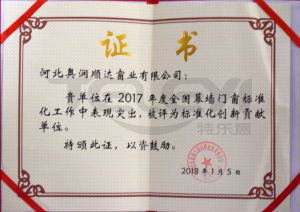 证书
河北奥润顺达窗业有限公司：
贵单位在2017年度全国幕墙门窗标准
化工作中表现突出，被评为标准化创新贡献
单位。
特颁此证，以资鼓励。
2018年1月5日
特乐意